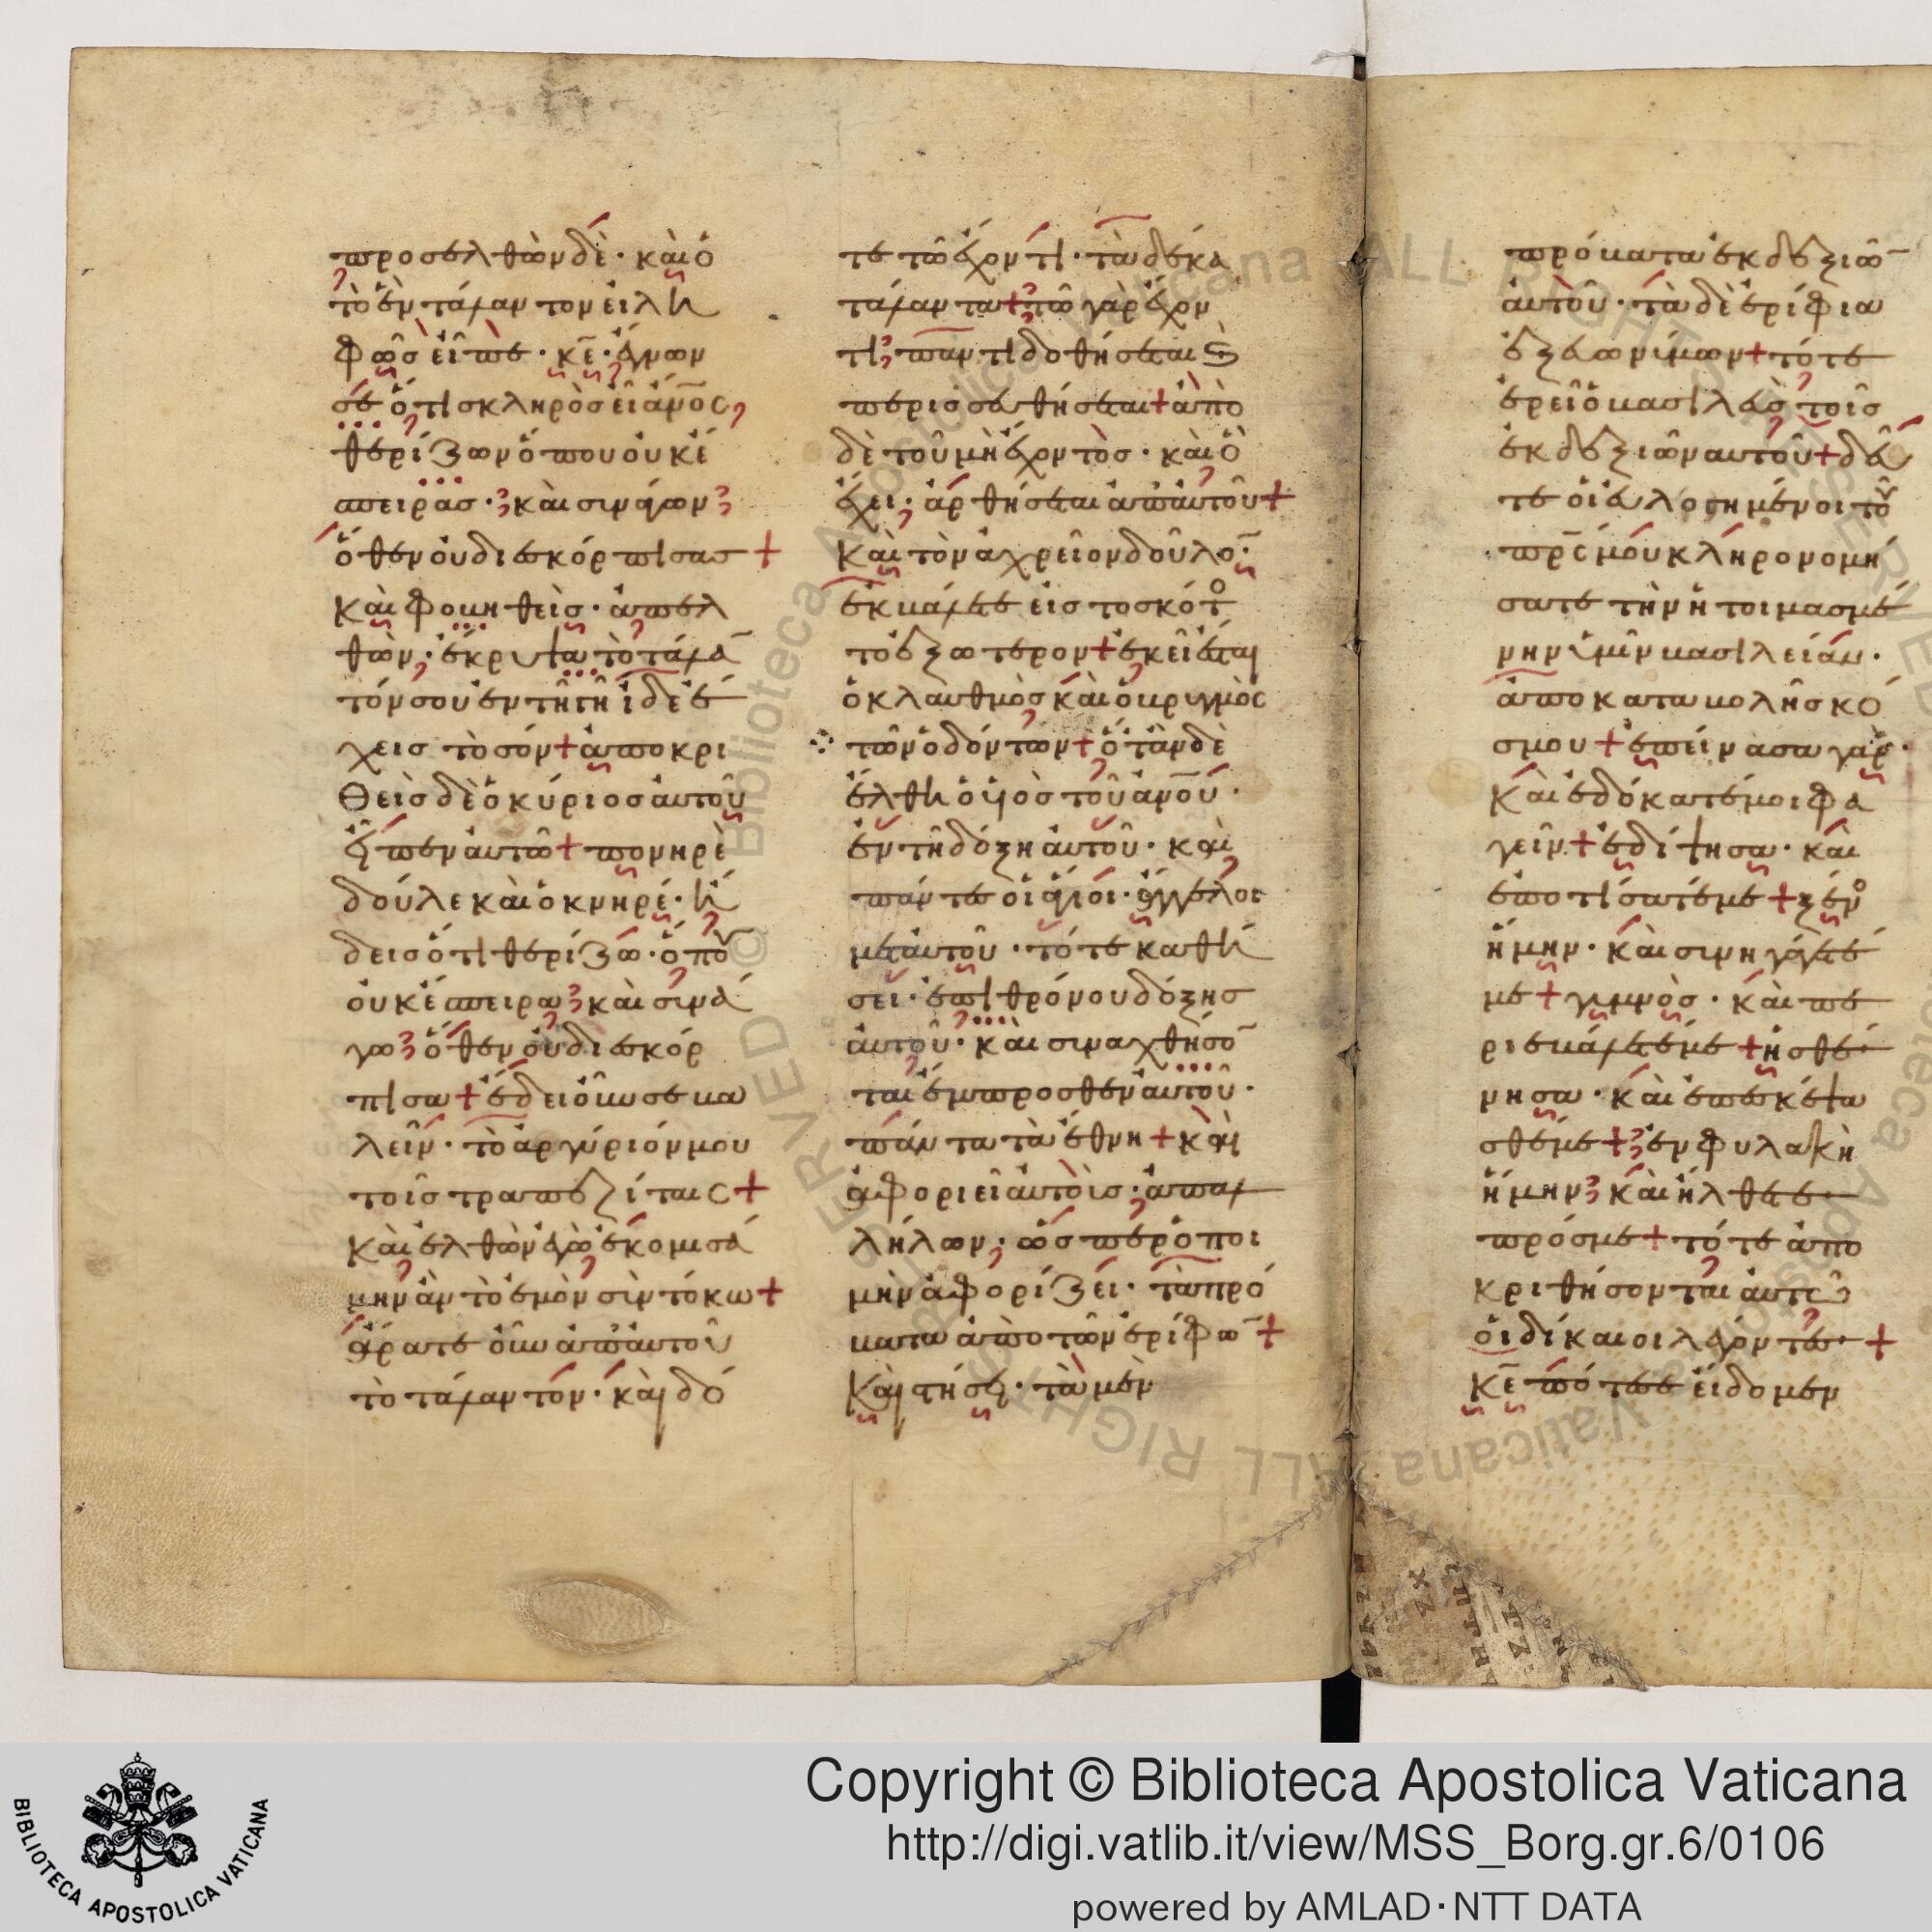 προσελθὼν δὲ · καὶ ὁ
τὸ ἓν τάλαντον εἰλη
φῶς εἶπε · κε̄ · ἔγνων
σέ ὅτι σκληρὸς εἶ ἄνο̄ς
θερίζων ὅπου οὐκ έ
σπειρας · καὶ σινάγων
ὅθεν οὐ διεσκόρπισας +
καὶ φοβηθεὶς · ἀπελ
θὼν · ἔκρυψα τὸ τάλᾱ
τόν σου ἐν τῆ γῆ ἰδὲ έ
χεις τὸ σόν + ἀποκρι
θεὶς δὲ ὁ κύριος ἀυτοῦ
εἶπεν ἀυτῶ + πονηρὲ
δούλε καὶ ὀκνηρέ · ή
δεις ὅτι θερίζω · ὅπου
οὐκ έσπειρα καὶ σινά
γω ὅθεν οὐ διεσκόρ
πισα + ἔδει οὖν σε βα
λεῖν · τὸ ἀργύριόν μου
τοῖς τραπεζίταις +
καὶ ἐλθὼν ἐγὼ ἐκομισά
μην ἂν τὸ ἐμὸν σὶν τόκω +
ἄρατε οὖν ἀπ' ἀυτοῦ
τὸ τάλαντον · καὶ δό
τε τῶ ἔχοντι · τὰ δέκα
τάλαντα + τῶ γὰρ ἔχον
τι παντὶ δοθήσεται ϗ
περισσευθήσεται + ἀπὸ
δὲ τοῦ μὴ ἔχοντος · καὶ ὃ
ἔχει · ἀρθήσεται ἀπ' ἀυτοῦ +
καὶ τὸν ἀχρεῖον δοῦλο̄ ·
ἐκβάλετε εἰς το σκότο
τὸ ἐξώτερον + ἐκεῖ ἔσται
ὁ κλαυθμὸς καὶ ὁ βριγμὸς
τῶν ὀδόντων + ὅταν δὲ
ἔλθη ὁ υἱὸς τοῦ ἀνο̄ύ ·
ἐν τῆ δόξη ἀυτοῦ · καὶ
πάντες οἱ ἅγιοι · ἄγγελοι
μετ ἀυτοῦ · τότε καθή
σει · ἐπὶ θρόνου δόξης
ἀυτοῦ · καὶ σιναχθήσο̄
ται ἔμπροσθεν ἀυτοῦ ·
πάντα τὰ ἔθνη + καὶ
ἀφοριεῖ ἀυτοὺς · ἀπαλ
λήλων · ὥσπερ ὁ ποι
μὴν ἀφορίζει · τὰ πρό
βατα ἀπὸ τῶν ἐρίφω̄ +
καὶ στήσει · τὰ μὲν
πρόβατα ἐκ δεξιῶ̄
ἀυτοῦ · τὰ δὲ ἐρίφια
ἐξ εὐωνίμων + τότε
ἐρεῖ ὁ βασιλεὺς τοῖς
ἐκ δεξιῶν αυτοῦ + δεῦ
τε οἱ ἐυλογημένοι τοῦ
πρ̄ς μου κληρονομή
σατε τὴν ἡτοιμασμέ
νην ὑμῖν βασιλείαν ·
ἀπο καταβολῆς κό
σμου + ἐπείνασα γὰρ ·
καὶ ἐδόκατέ μοι φα
γεῖν + ἐδίψησα · καὶ
ἐποτίσατέ με + ξένο
ἤμην · καὶ σινηγάγετέ
με + γιμνὸς · καὶ πε
ριεβάλετέ με + ἠσθέ
νησα · καὶ ἐπεσκέψα
σθέ με + ἐν φυλακὴ
ἤμην καὶ ἤλθετε ·
πρός με + τότε ἀπο
κριθήσονται ἀυτῶ
οἱ δίκαιοι λέγοντες · +
κε̄ πότε σε εἴδομεν
© Biblioteca Apostolica Vaticana ALL RIGHTS RESERVED
BIBLIOTECA APOSTOLICA VATICANA
Copyright © Biblioteca Apostolica Vaticana
http://digi.vatlib.it/view/MSS_Borg.gr.6/0106
powered by AMLAD·NTT DATA